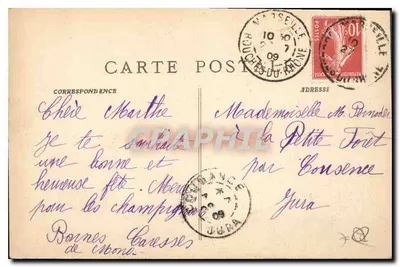 CARTE POSTALE
CORRESPONDANCE
ADRESSE
MARSEILLE
BOUCHES-DU-RHONE
09
10
Chère Marthe
Je te souhaite
une bonne et
heureuse fête. Merci
pour les champignons
Bonnes Caresses
de
Mademoiselle M.
à la Petite Forêt
par Cousance
Jura
JURA
09